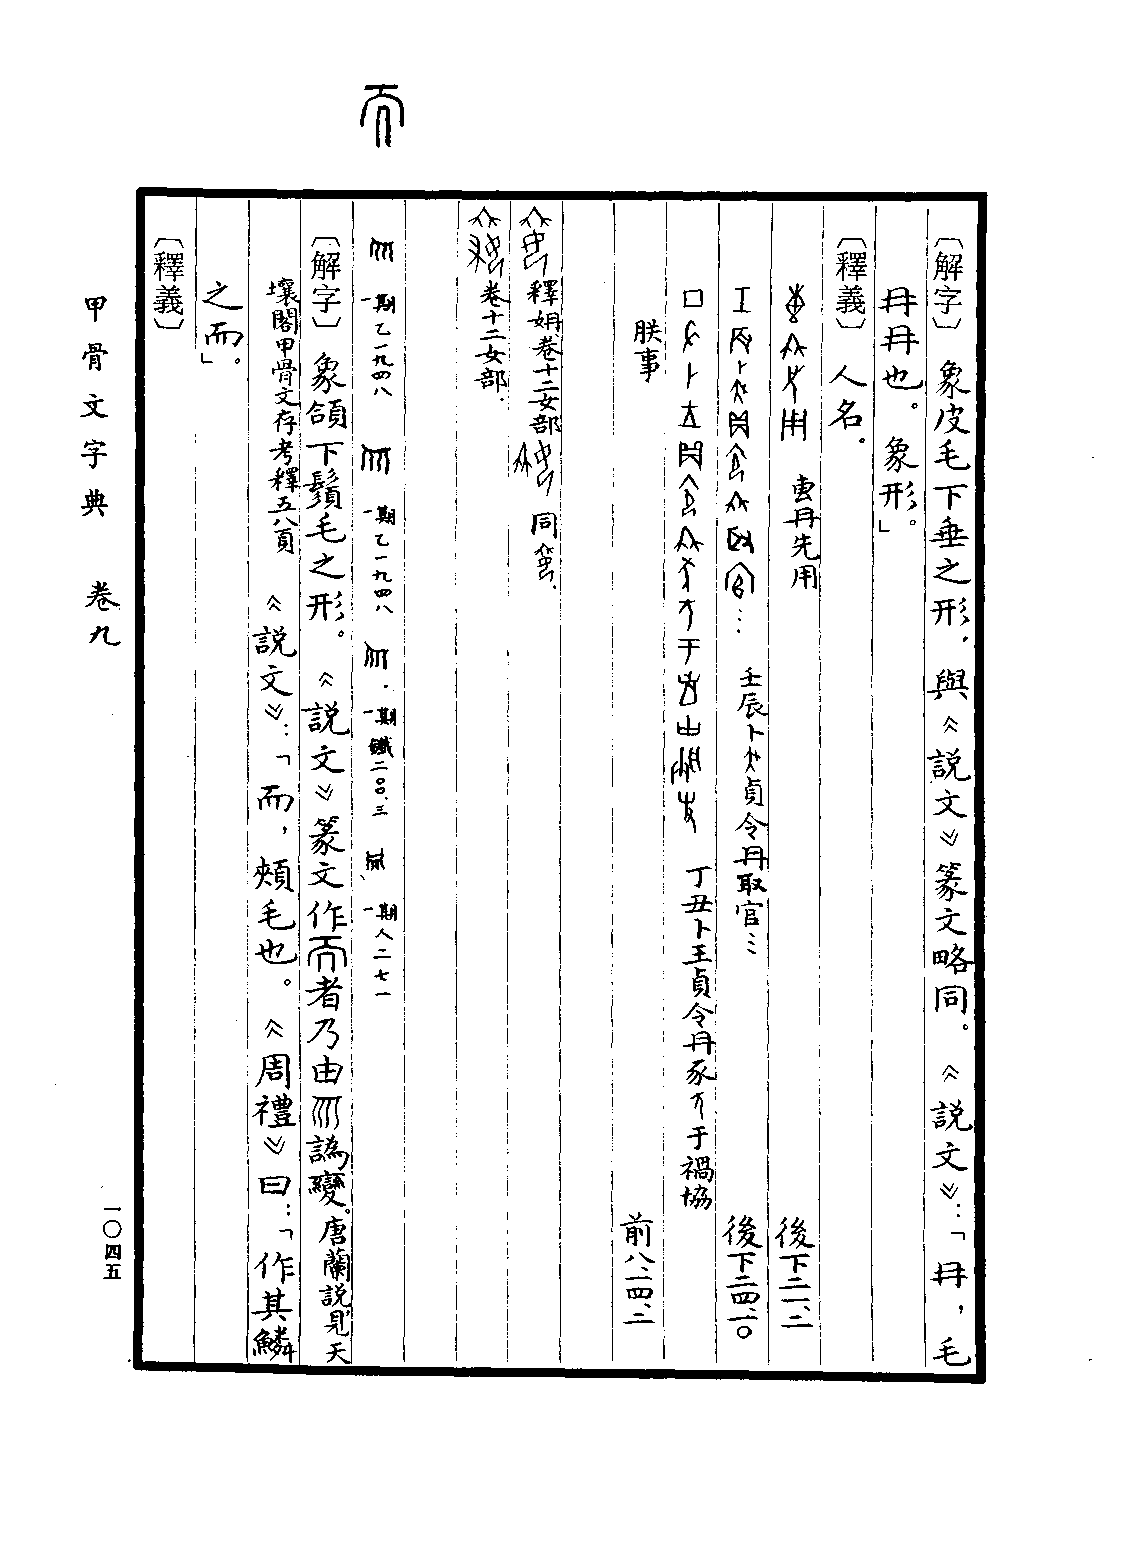 〔解字〕象皮毛下垂之形，與《說文》篆文略同。《說文》：「冄，毛
冄冄也。象形。」
〔釋義〕人名。
叀冄先用 後下二一、二
壬辰卜貞令冄取官… 後下二四、一〇
丁丑卜王貞令冄豕于禍協
朕事 前八、一四、二
釋姌卷十二女部 同
卷十二女部.
一期乙一九四八 一期乙一九四八 一期鐵二〇〇.三 一期人二七一
〔解字〕象頷下鬚毛之形。《說文》篆文作而者乃由譌變。唐蘭說見天
壤閣甲骨文存考釋五八頁 《說文》：「而，頰毛也。《周禮》曰：「作其鱗
之而。」
〔釋義〕
而
甲骨文字典 卷九
一〇四五